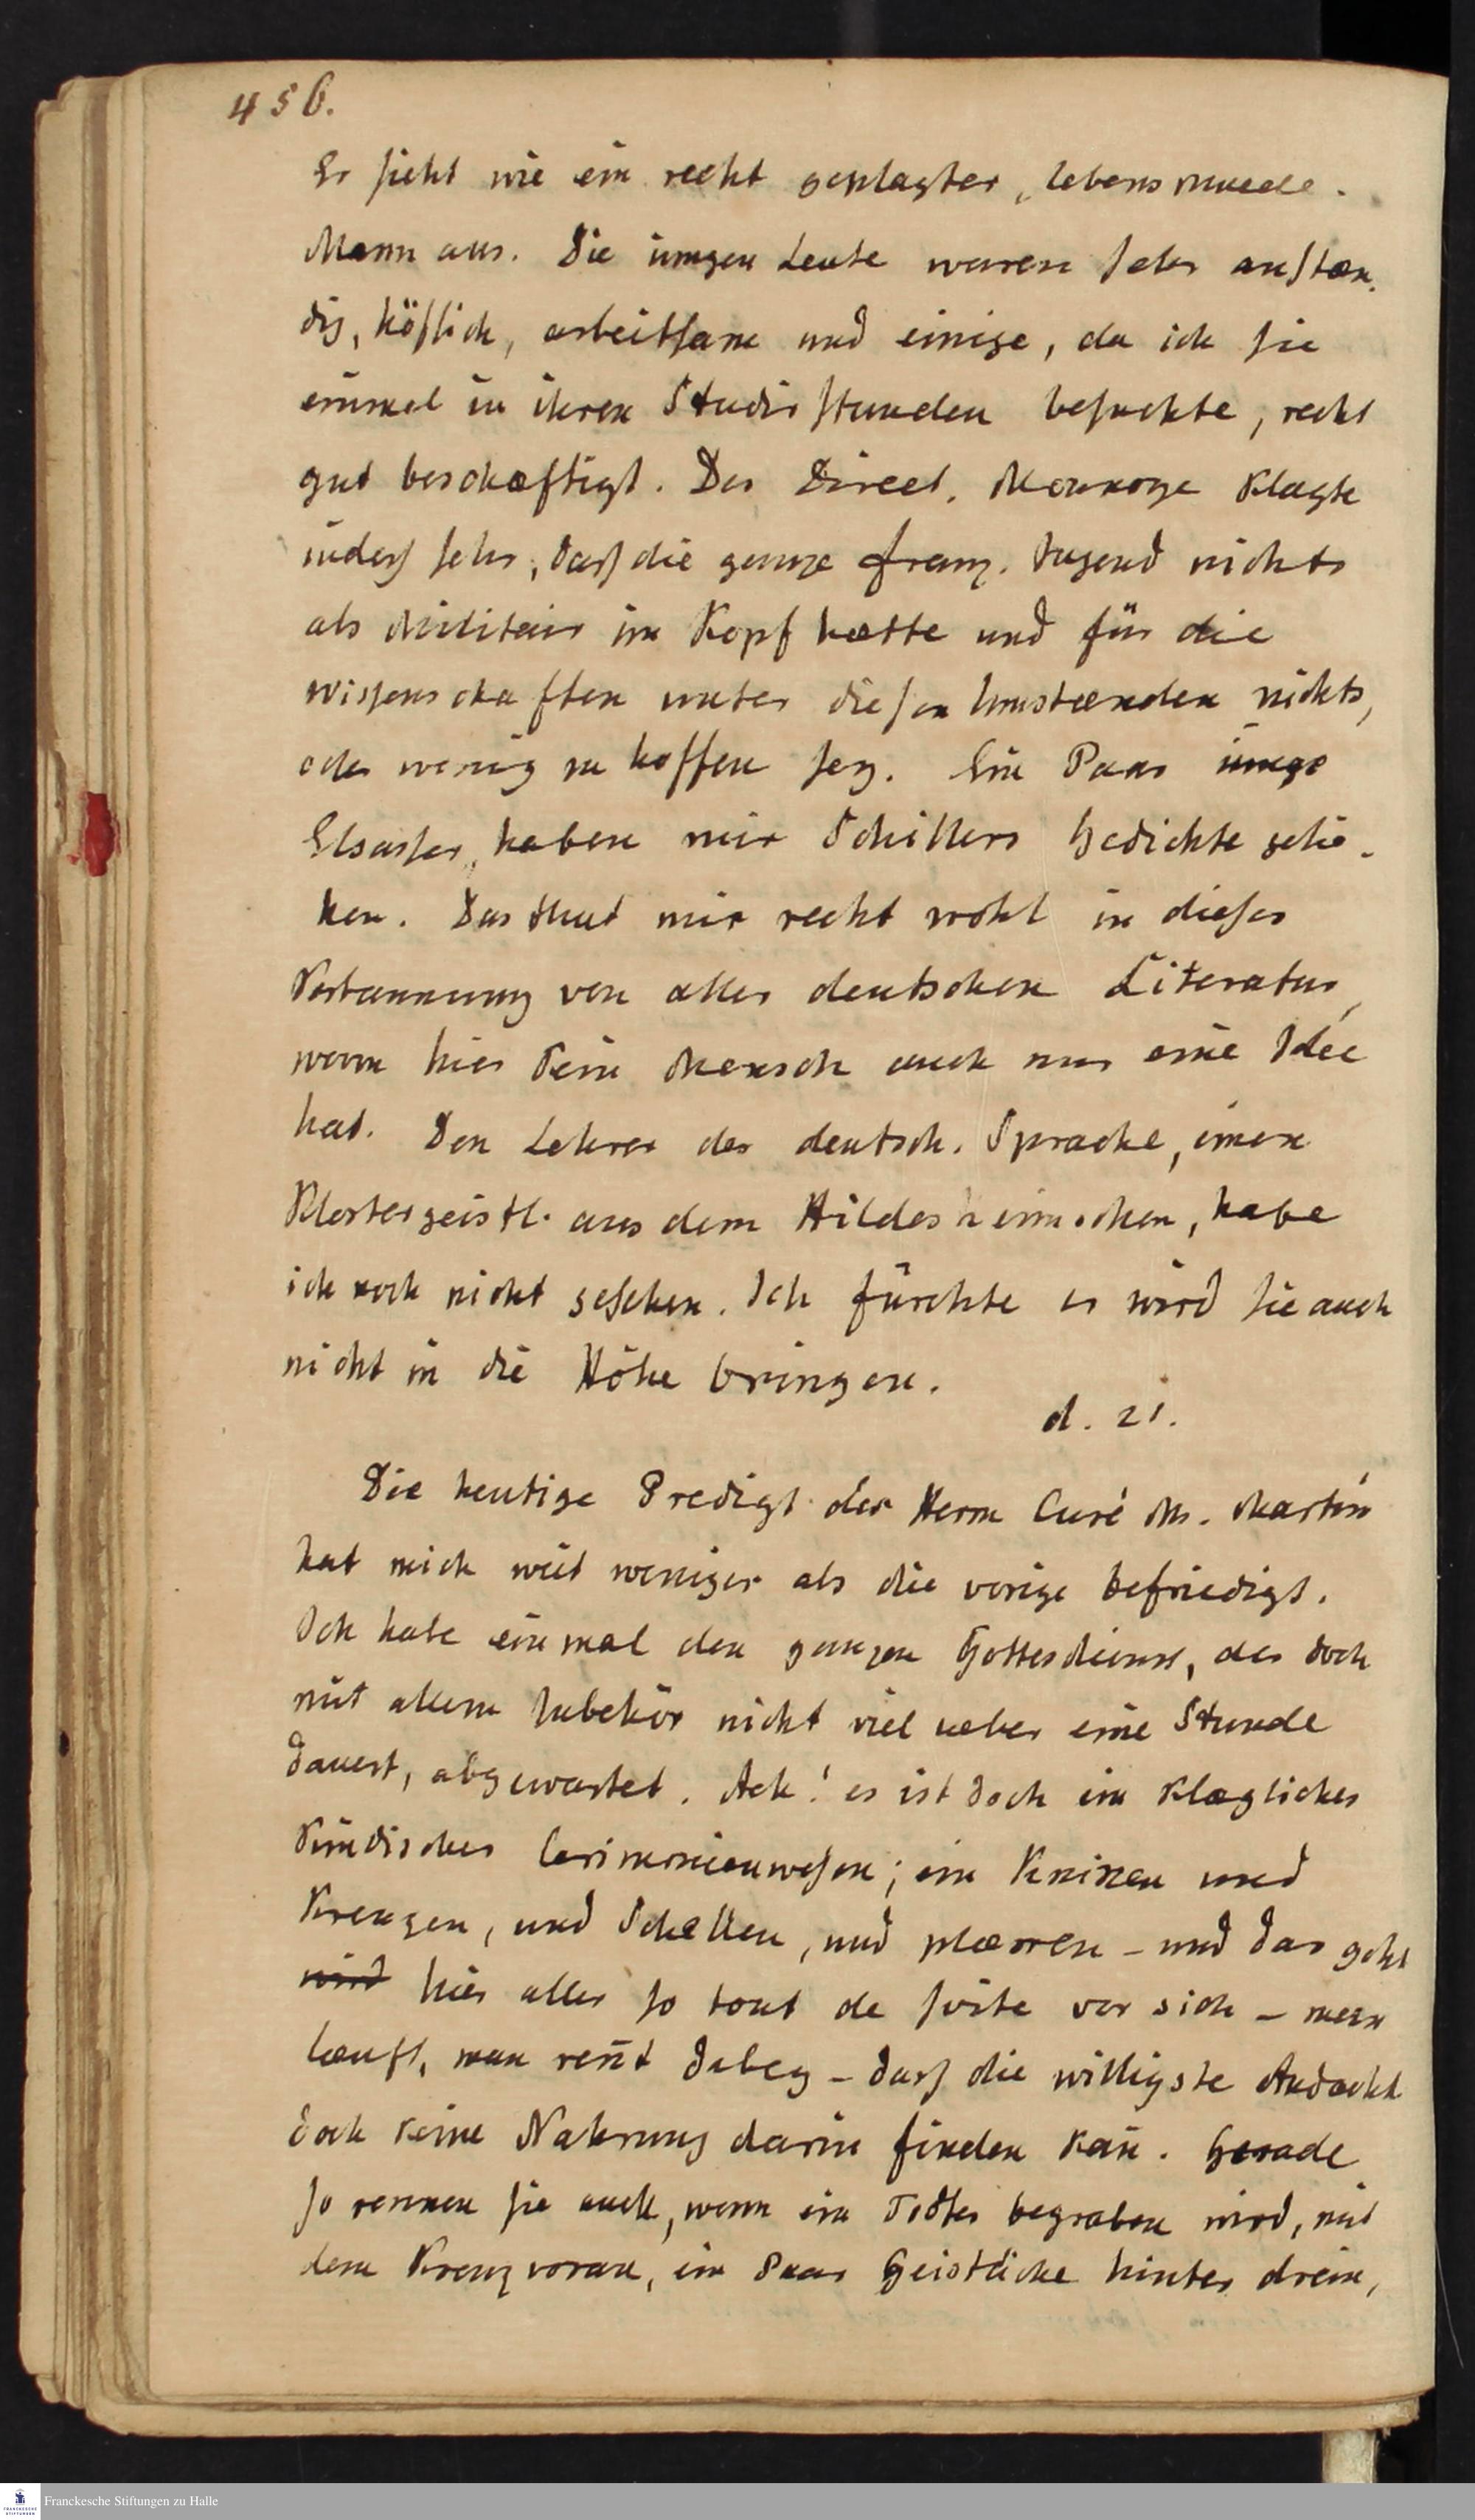 456.
Er sieht wie ein recht geplagter, lebensmuede.
Mann aus. Die iungen Leute waren sehr anstæn.
dig, höflich, arbeitsam und einige, da ich sie
einmal in ihren Studirstunden besuchte, recht
gut beschæftigt. Der Direct. klagte
indeß sehr, daß die ganze franz. Jugend nichts
als Militair im Kopf hætte und für die
Wissenschaften unter diesen Umstænden nichts,
oder wenig zu hoffen sey. Ein Paar iunge
Elsasser, haben mir Schillers Gedichte gelie-
hen. Das thut mir recht wohl in dieser
Verbannung von aller deutschen Literatur,
wovon hier kein Mensch auch nur eine Idée
hat. Den Lehrer der deutsch. Sprache, einen
Klostergeistl. aus dem Hildesheimschen, habe
ich noch nicht gesehen. Ich fürchte er wird sie auch
nicht in die Höhe bringen.
d. 21.
Die heutige Predigt des Herrn Curé Mr. Martin
hat mich weit weniger als die vorige befriedigt.
Ich habe einmal den ganzen Gottesdienst, der doch
mit allem Zubehör nicht viel ueber eine Stunde
dauert, abgewartet. Ach! es ist doch ein klægliches
kindisches Cerimonienwesen; ein Knixen und
Kreuzen, und Schellen, und plærren - und das geht
wird hier alles so tout de suite vor sich - man
læuft, man reñt dabey - daß die willigste Andacht
doch keine Nahrung darin finden kañ. Gerade
so rennen sie auch, wenn ein Todter begraben wird, mit
dem Kreuz voran, ein Paar Geistliche hinter drein,
Franckesche Stiftungen zu Halle